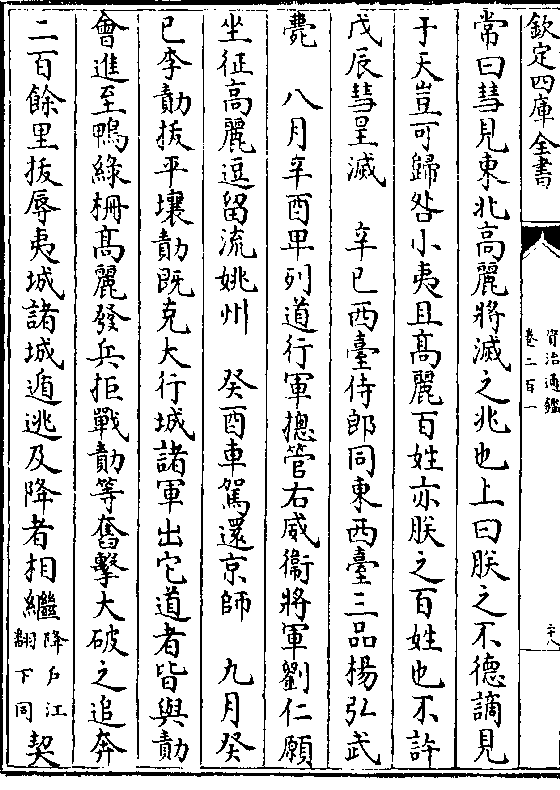 欽定四庫全書
資治通鑑
卷二百一
常曰彗見東北高麗將滅之兆也上曰朕之不德謫見
于天豈可歸咎小夷且高麗百姓亦朕之百姓也不許
戊辰彗星滅　辛巳西臺侍郎同東西臺三品楊弘武
薨　八月辛酉卑列道行軍摠管右威衞將軍劉仁願
坐征高麗逗留流姚州　癸酉車駕還京師　九月癸
巳李勣拔平壤勣既克大行城諸軍出它道者皆與勣
會進至鴨綠柵高麗發兵拒戰勣等奮擊大破之追奔
二百餘里拔辱夷城諸城遁逃及降者相繼降戶江翻下同契